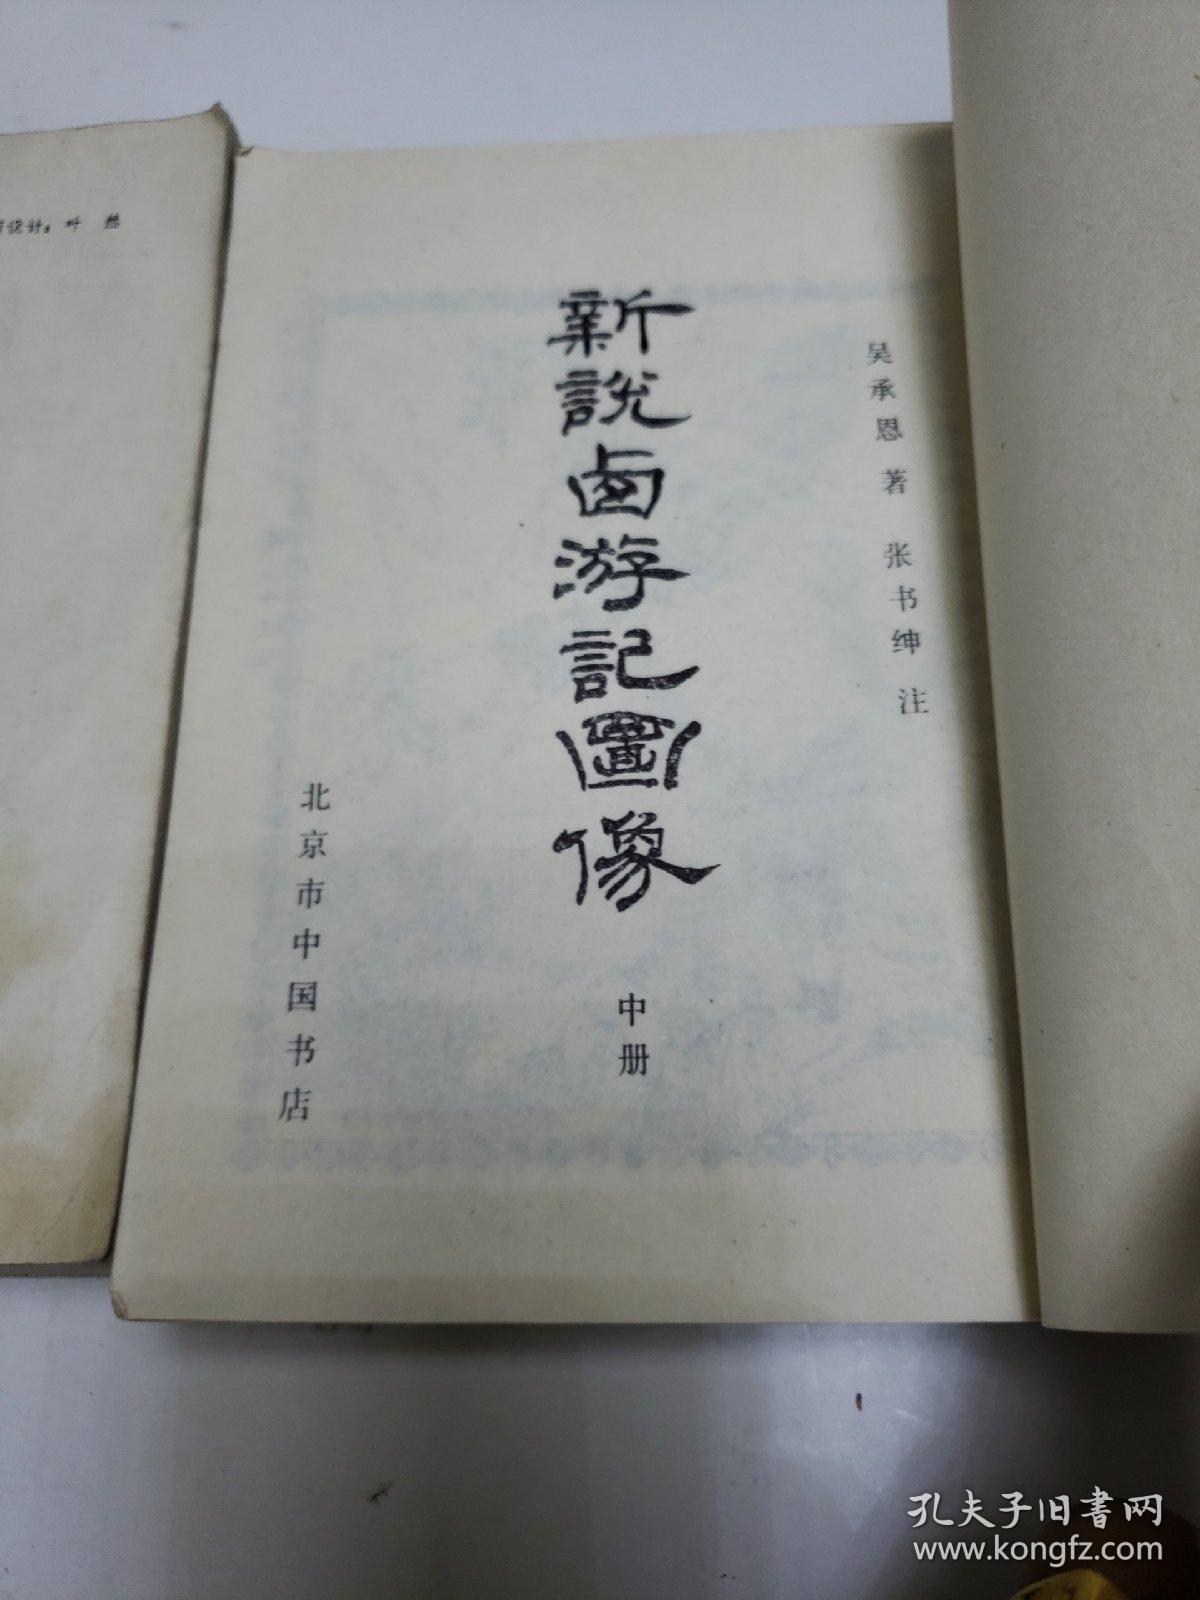 吴承恩著 张书绅注
新説西游記圖像
中册
北京市中国书店
设计：叶 然
孔夫子旧书网
www.kongfz.com